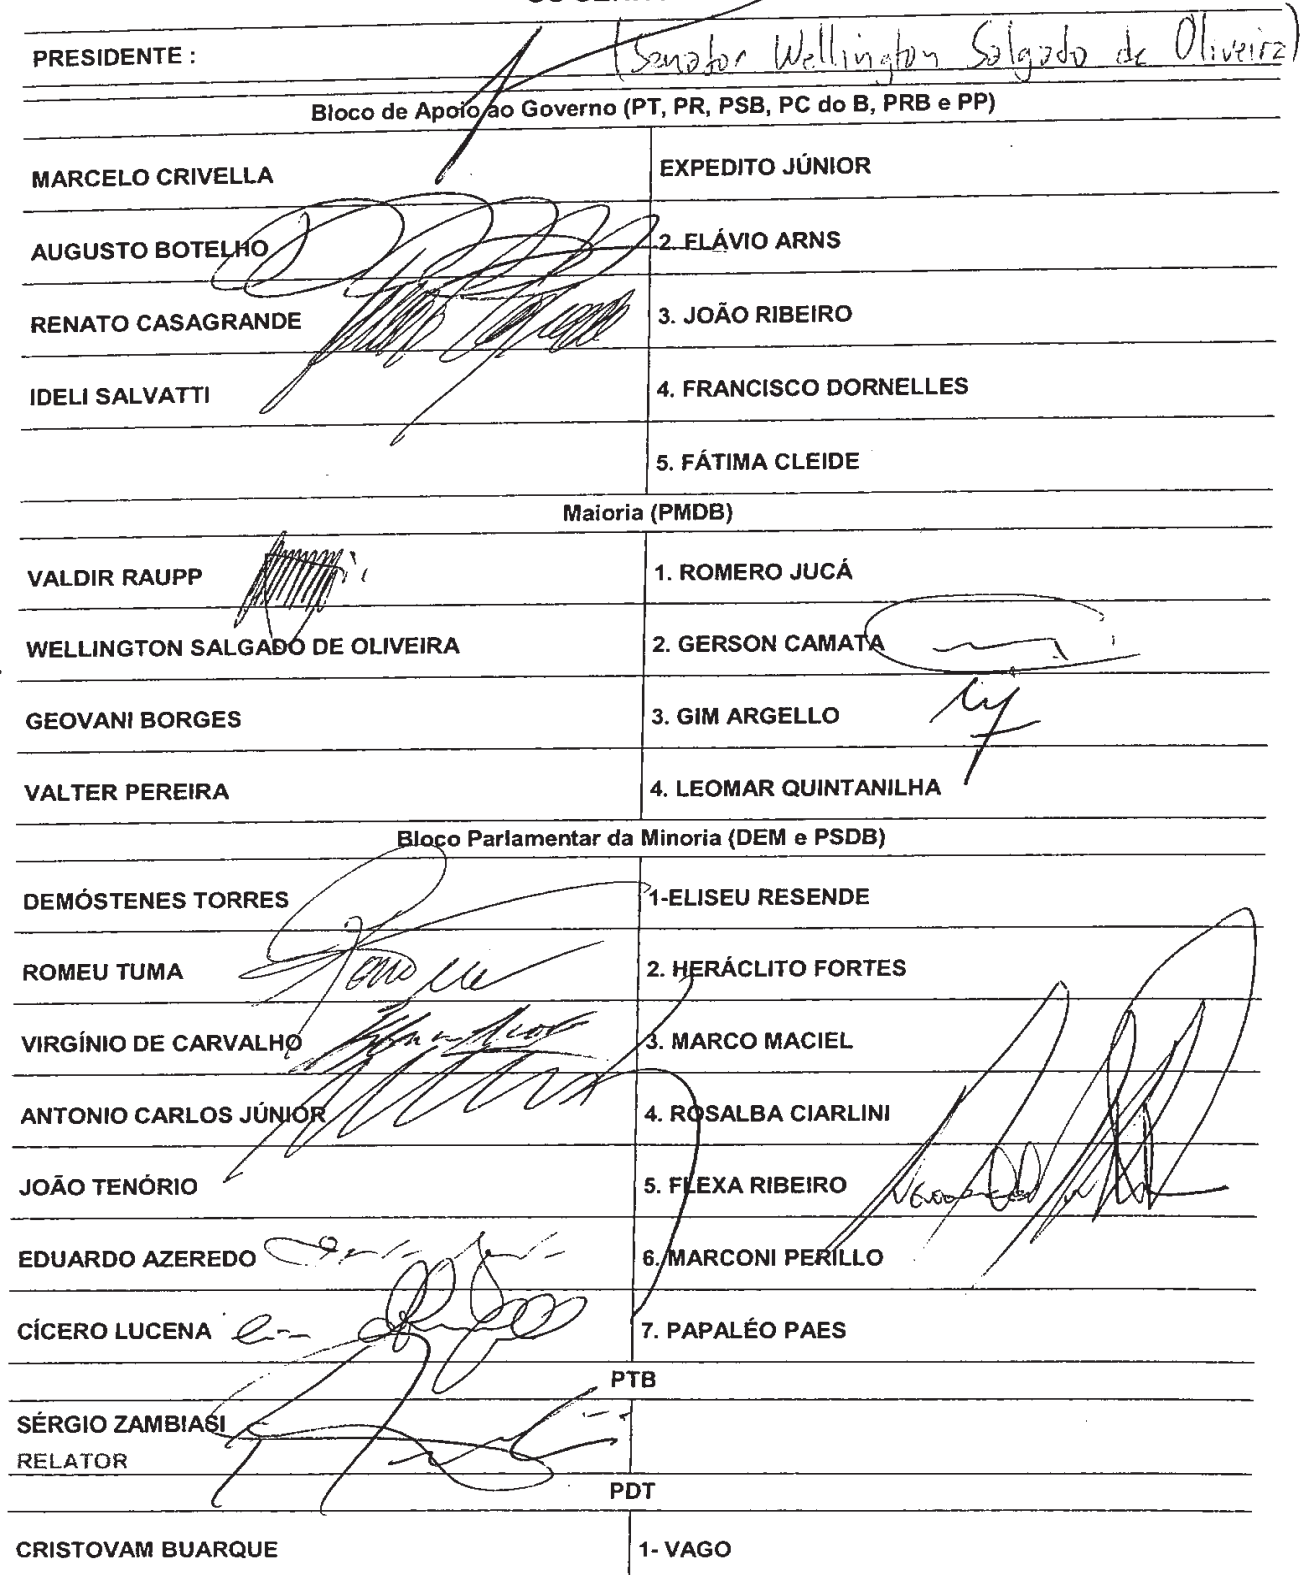 PRESIDENTE :
(Senator Wellington Salgado de Oliveira)
Bloco de Apoio ao Governo (PT, PR, PSB, PC do B, PRB e PP)
MARCELO CRIVELLA
EXPEDITO JÚNIOR
AUGUSTO BOTELHO
2. FLÁVIO ARNS
RENATO CASAGRANDE
3. JOÃO RIBEIRO
IDELI SALVATTI
4. FRANCISCO DORNELLES
5. FÁTIMA CLEIDE
Maioria (PMDB)
VALDIR RAUPP
1. ROMERO JUCÁ
WELLINGTON SALGADO DE OLIVEIRA
2. GERSON CAMATA
GEOVANI BORGES
3. GIM ARGELLO
VALTER PEREIRA
4. LEOMAR QUINTANILHA
Bloco Parlamentar da Minoria (DEM e PSDB)
DEMÓSTENES TORRES
1-ELISEU RESENDE
ROMEU TUMA
2. HERÁCLITO FORTES
VIRGÍNIO DE CARVALHO
3. MARCO MACIEL
ANTONIO CARLOS JÚNIOR
4. ROSALBA CIARLINI
JOÃO TENÓRIO
5. FLEXA RIBEIRO
EDUARDO AZEREDO
6. MARCONI PERILLO
CÍCERO LUCENA
7. PAPALÉO PAES
PTB
SÉRGIO ZAMBIASI
RELATOR
PDT
CRISTOVAM BUARQUE
1- VAGO